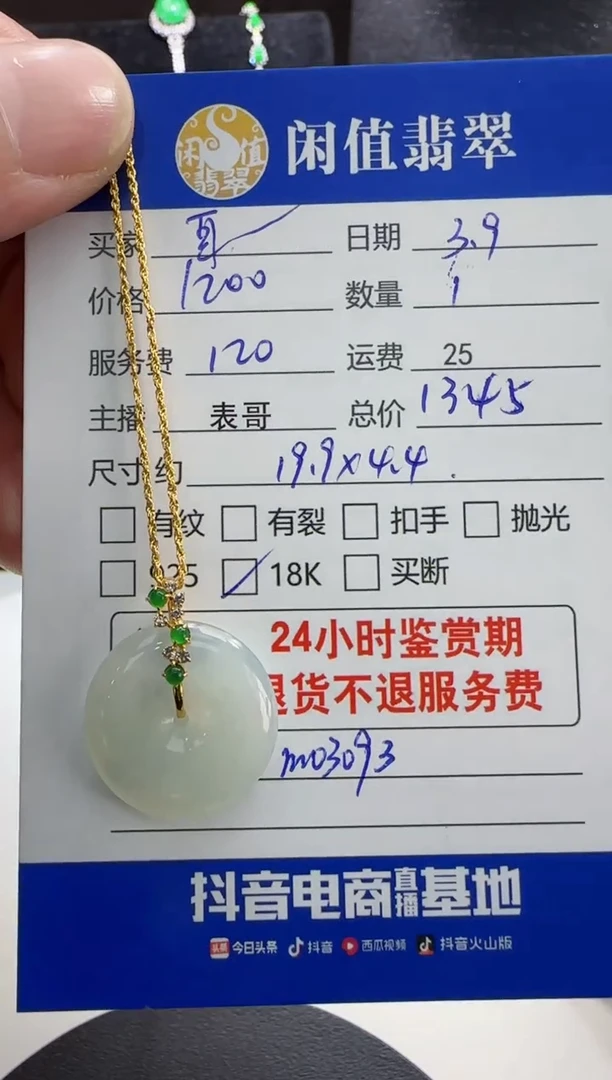 闲值翡翠
闲值翡翠
买家 日期 3.9
价格 1200 数量 1
服务费 120 运费 25
主播 表哥 总价 1345
尺寸 约 19.9×4.4
有纹 有裂 扣手 抛光
925 18K 买断
24小时鉴赏期
退货不退服务费
m03093
抖音电商直播基地
头条 今日头条 抖音 西瓜视频 抖音火山版